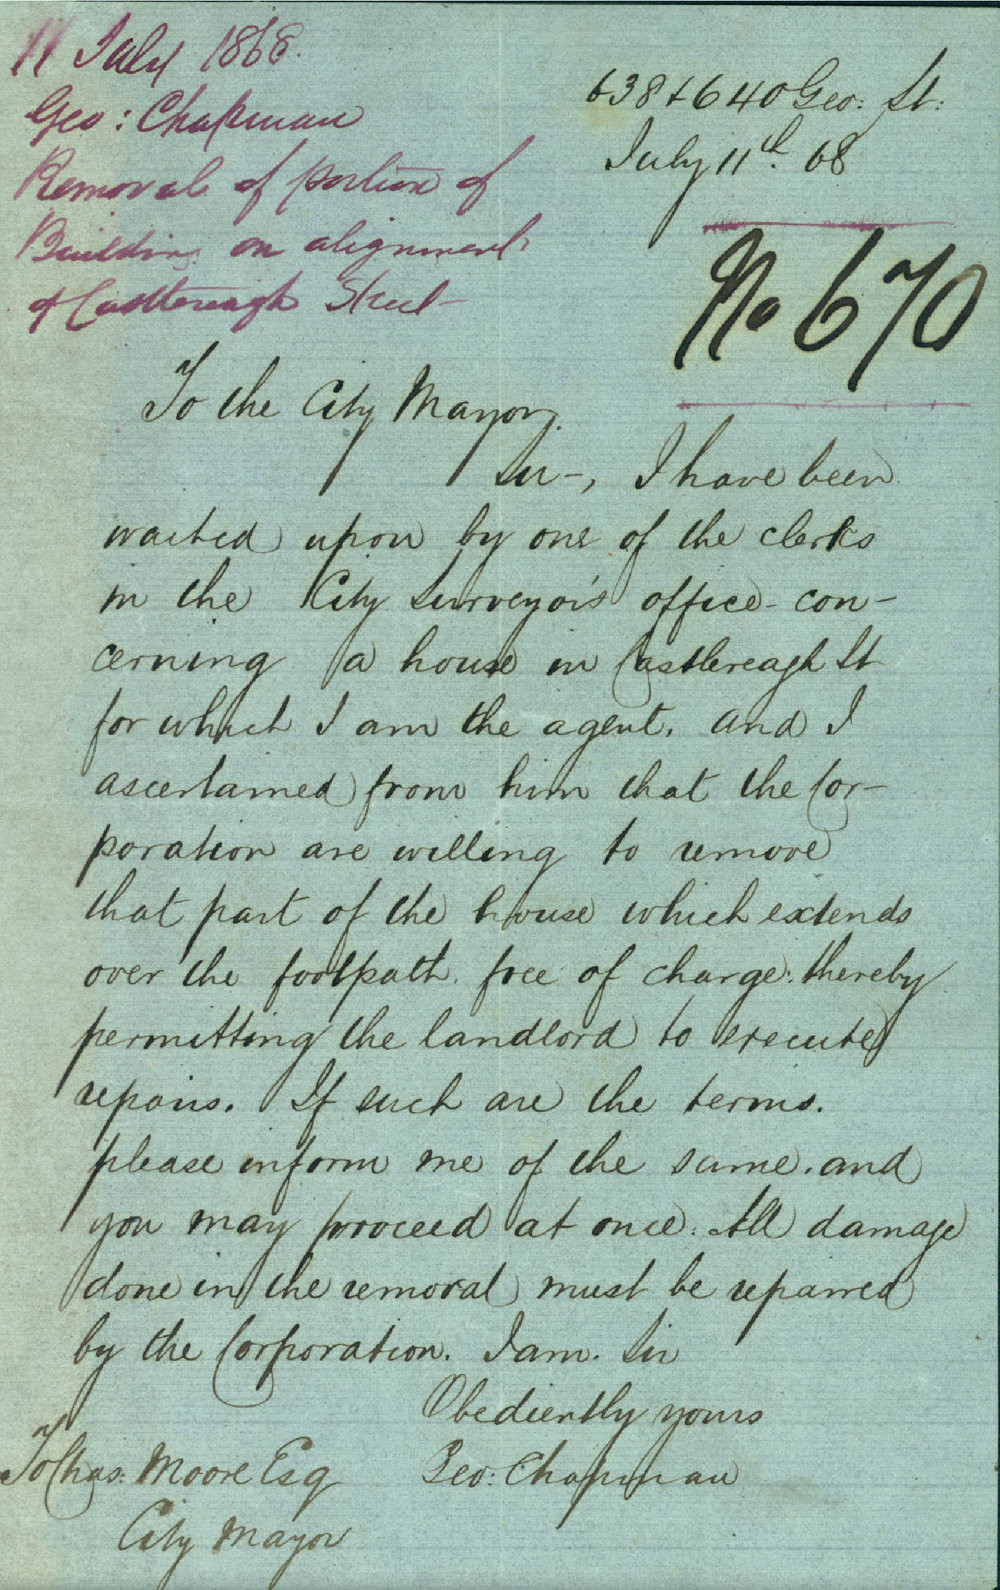 11 July 1868.
Geo: Chapman
Removal of portion of
Building on alignment
of Castlereagh Street
638 & 640 Geo: St:
July 11th. 68
No 670
To the City Mayor.
Sir-, I have been
waited upon by one of the clerks
in the City Surveyor's office - con-
cerning a house in Castlereagh St
for which I am the agent. and I
ascertained from him that the Cor-
poration are willing to remove
that part of the house which extends
over the footpath free of charge: thereby
permitting the landlord to execute
repairs. If such are the terms.
please inform me of the same. and
you may proceed at once. All damage
done in the removal must be repaired
by the Corporation. I am. Sir
Obediently yours
Geo: Chapman
To Chas: Moore Esq
City Mayor